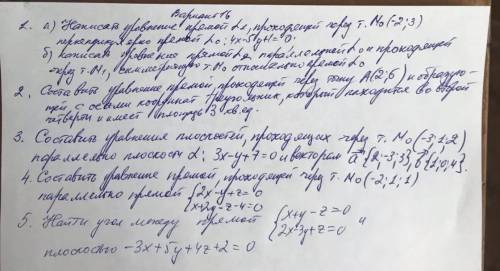 Вариант 16
1. а) Написать уравнение прямой L1, проходящей через т. M0(-2;3)
перпендикулярно прямой L0: 4x-5y+1=0.
б) написать уравнение прямой L2 параллельной L0 и проходящей
через т. M1, симметричную т. M0 относительно прямой L0
2. Составить уравнение прямой, проходящей через точку A(2;6) и образую-
щей, с осями координат треугольник, который находится во второй
четверти и имеет площадь 3 кв.ед.
3. Составить уравнения плоскостей, проходящих через т. M0(-3;1;2)
параллельно плоскости α: 3x-y+7=0 и векторам a{2;-3;3}, b{1;0;4}.
4. Составить уравнение прямой, проходящей через т. M0(-2;1;1)
параллельно прямой {2x-y+z=0
x+2y-z-4=0
5. Найти угол между прямой {x+y-z=0
2x-3y+z=0 и
плоскостью -3x+5y+4z+2=0